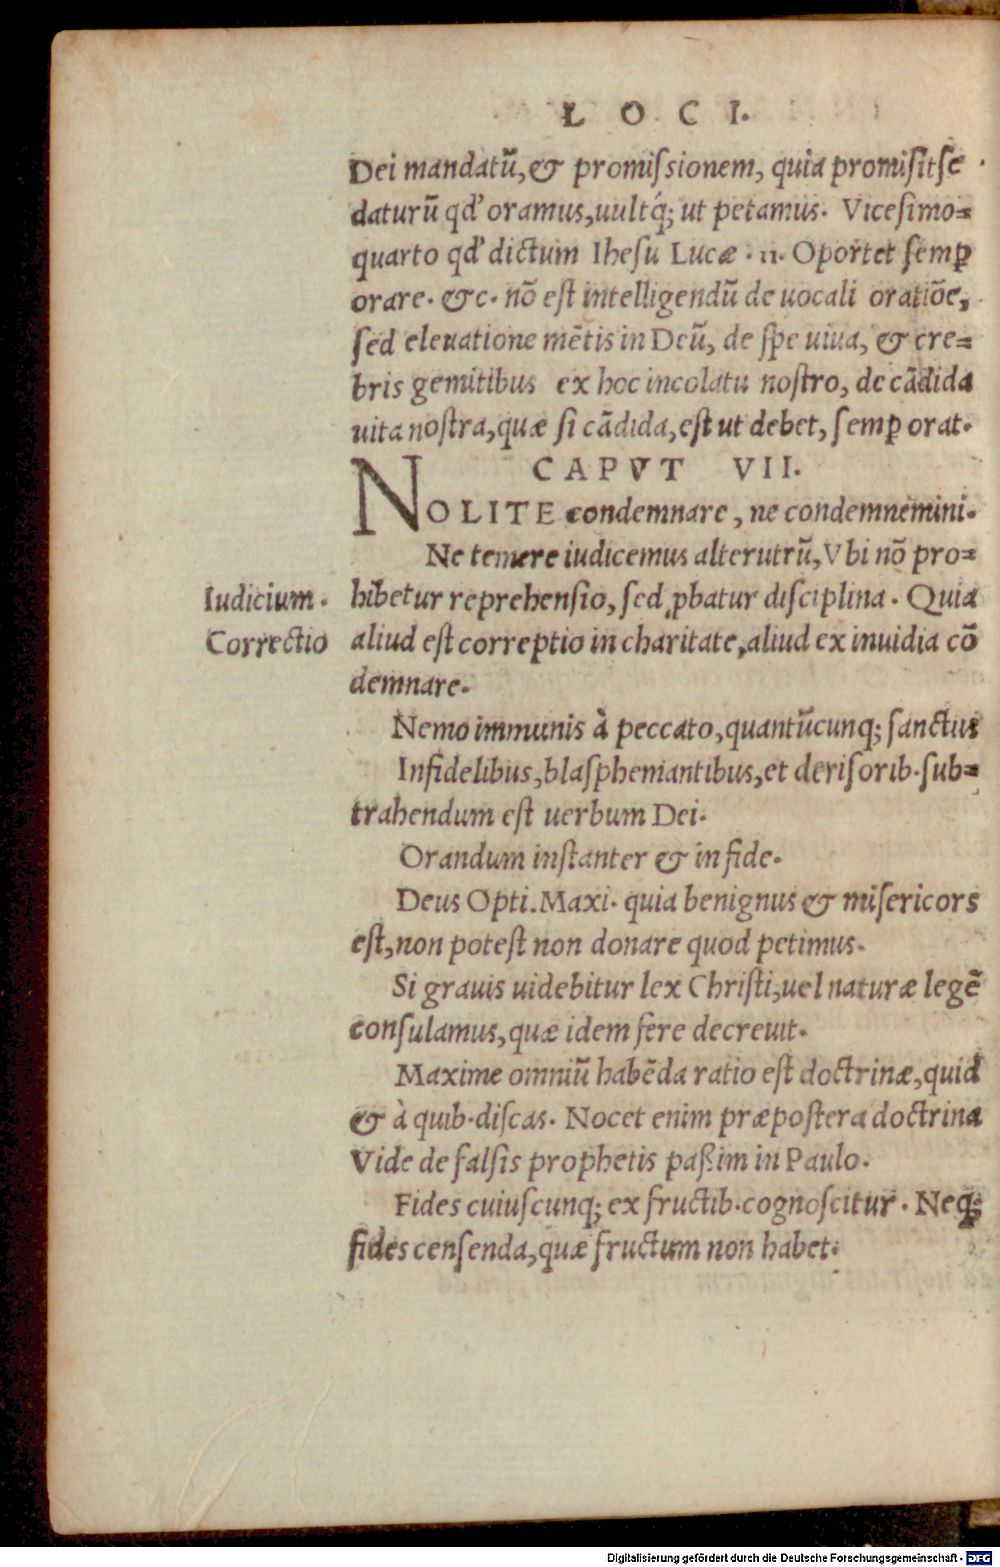 L O C I.
Dei mandatũ, & promissionem, quia promisit se
daturũ qđ oramus, uultq́; ut petamus. Vicesimo=
quarto qđ dictum Ihesu Lucæ. 11. Oportet semꝑ
orare. &c. nõ est intelligendũ de uocali oratiõe,
sed eleuatione mẽtis in Deũ, de spe uiua, & cre=
bris gemitibus ex hoc incolatu nostro, de cãdida
uita nostra, quæ si cãdida, est ut debet, semꝑ orat.
CAPVT VII.
NOLITE condemnare, ne condemnemini.
Ne temere iudicemus alterutrũ, Vbi nõ pro=
Iudicium. hibetur reprehensio, sed ꝓbatur disciplina. Quia
Correctio aliud est correptio in charitate, aliud ex inuidia cõ
demnare.
Nemo immunis à peccato, quantũcunq; sanctus
Infidelibus, blasphemantibus, et derisorib. sub=
trahendum est uerbum Dei.
Orandum instanter & in fide.
Deus Opti. Maxi. quia benignus & misericors
est, non potest non donare quod petimus.
Si grauis uidebitur lex Christi, uel naturæ legẽ
consulamus, quæ idem fere decreuit.
Maxime omniũ habẽda ratio est doctrinæ, quid
& à quib. discas. Nocet enim præpostera doctrina
Vide de falsis prophetis paßim in Paulo.
Fides cuiuscunq; ex fructib. cognoscitur. Neq;
fides censenda, quæ fructum non habet.
Digitalisierung gefördert durch die Deutsche Forschungsgemeinschaft - DFG